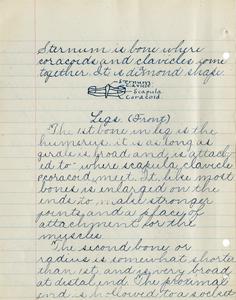 Sternum is bone where
coracoids and clavicles come
together. It is dimond shape
Sternum
Scapula
Coracoid
Legs. (Front)
"The 1st bone in leg is the
humerus. it is as long as
girdle is broad, and is attach-
ed to where scapula, clavicle
& coracoid meet. It, like most
bones is enlarged on the
ends to make stronger
joints, and a place of
attachment for the
muscles.
"The second bone or
radius is somewhat shorter
than 1st, and is very broad
at distal end. The proximal
end is hollowed to a socket